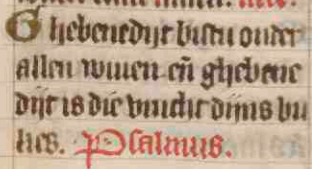 Ghebenedijt bistu onder
allen wiuen eñ ghebene
dijt is die vrucht dijns bu
kes. Psalmus.